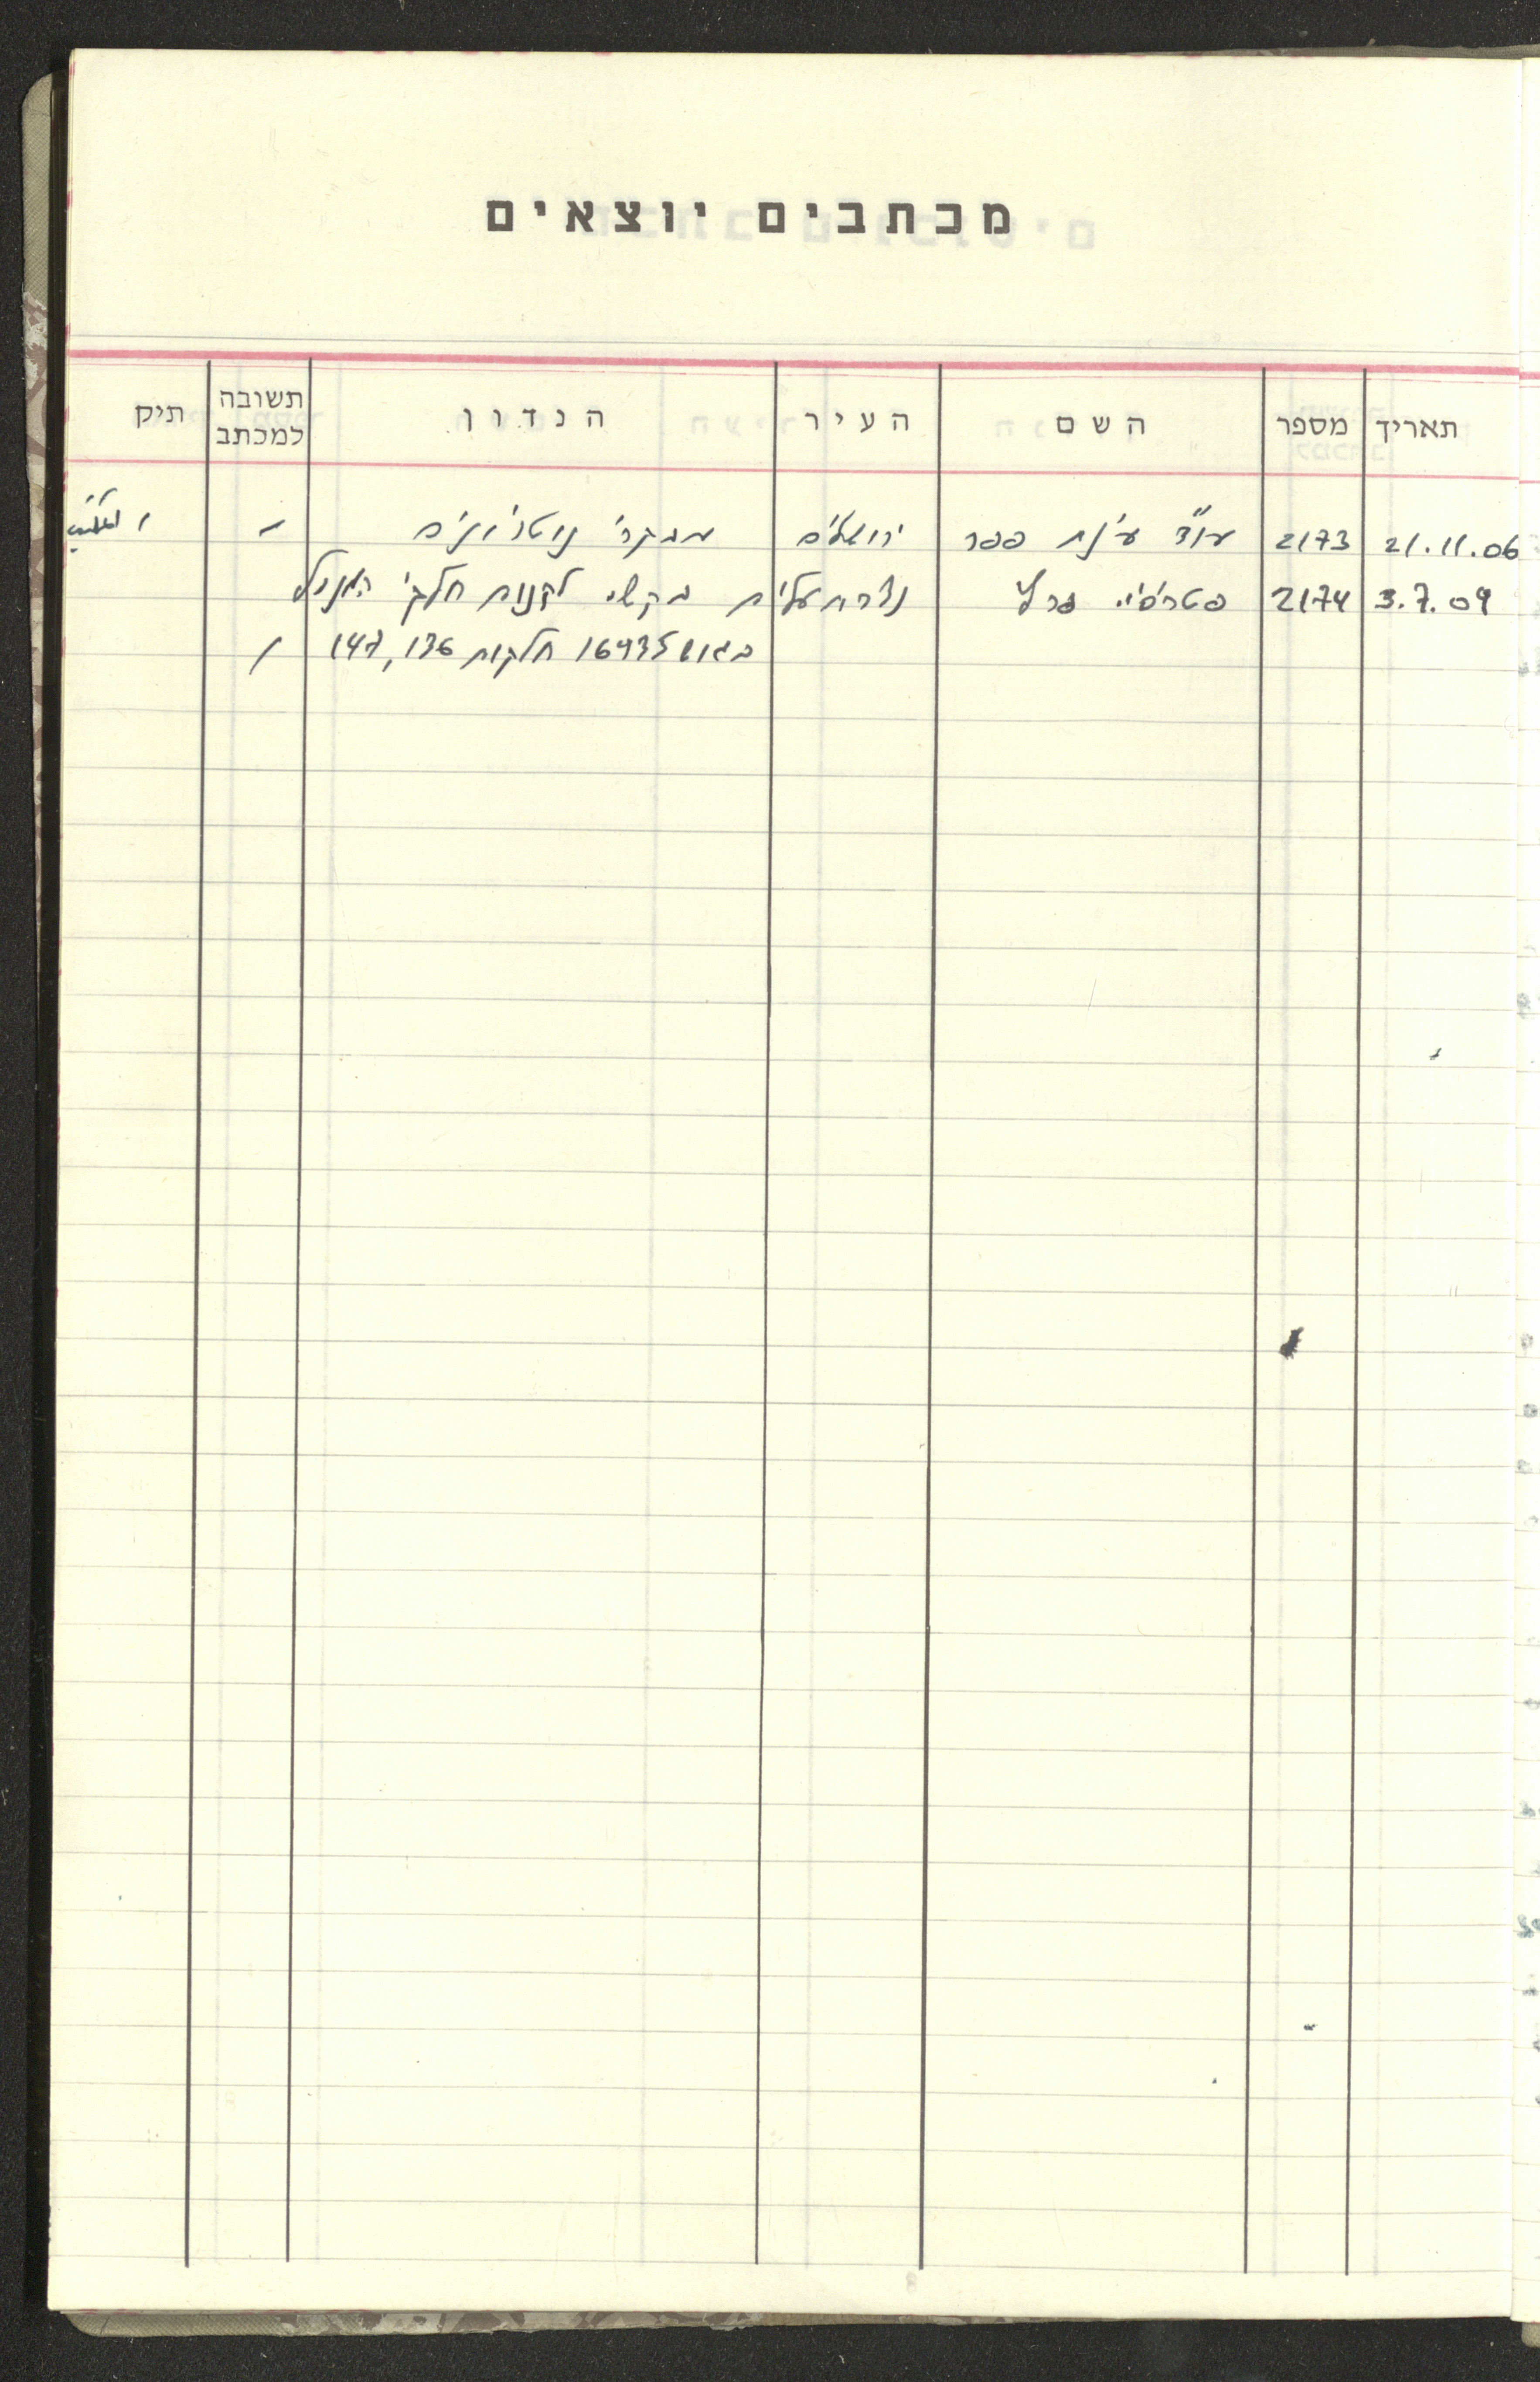 מכתבים יוצאים
תאריך מספר השם העיר הנדון תשובה למכתב תיק
21.11.06 2173 עו"ד ענת פפר ירושלים נוטריונים -
3.7.09 2174 נצרת עלית בקשה לקנות חלקי
בגוש 16935 חלקות 136, 147 /